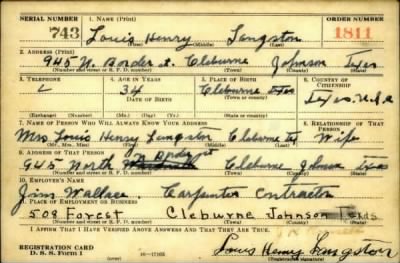 SERIAL NUMBER 1. NAME (Print) ORDER NUMBER
743 Louis Henry Langston 1811
(First) (Middle) (Last)
2. ADDRESS (Print)
945 N. Border st. Cleburne Johnson Texas
(Number and street or R. F. D. number) (Town) (County) (State)
3. TELEPHONE 4. AGE IN YEARS 5. PLACE OF BIRTH 6. COUNTRY OF CITIZENSHIP
34 Cleburne
DATE OF BIRTH (Town or county) Texas. U.S.A
(Exchange) (Number) (Mo.) (Day) (Yr.) (State or country)
7. NAME OF PERSON WHO WILL ALWAYS KNOW YOUR ADDRESS 8. RELATIONSHIP OF THAT PERSON
Mrs Louis Henry Langston Cleburne Wife
(Mr., Mrs., Miss) (First) (Middle) (Last)
9. ADDRESS OF THAT PERSON
945 North Border st Cleburne Johnson Texas
(Number and street or R. F. D. number) (Town) (County) (State)
10. EMPLOYER'S NAME
Jim Wallace. Carpenter Contractor
11. PLACE OF EMPLOYMENT OR BUSINESS
508 Forest Cleburne Johnson Texas
(Number and street or R. F. D. number) (Town) (County) (State)
I AFFIRM THAT I HAVE VERIFIED ABOVE ANSWERS AND THAT THEY ARE TRUE.
REGISTRATION CARD
D. S. S. Form 1 16—17105 Louis Henry Langston
(Registrant's signature)